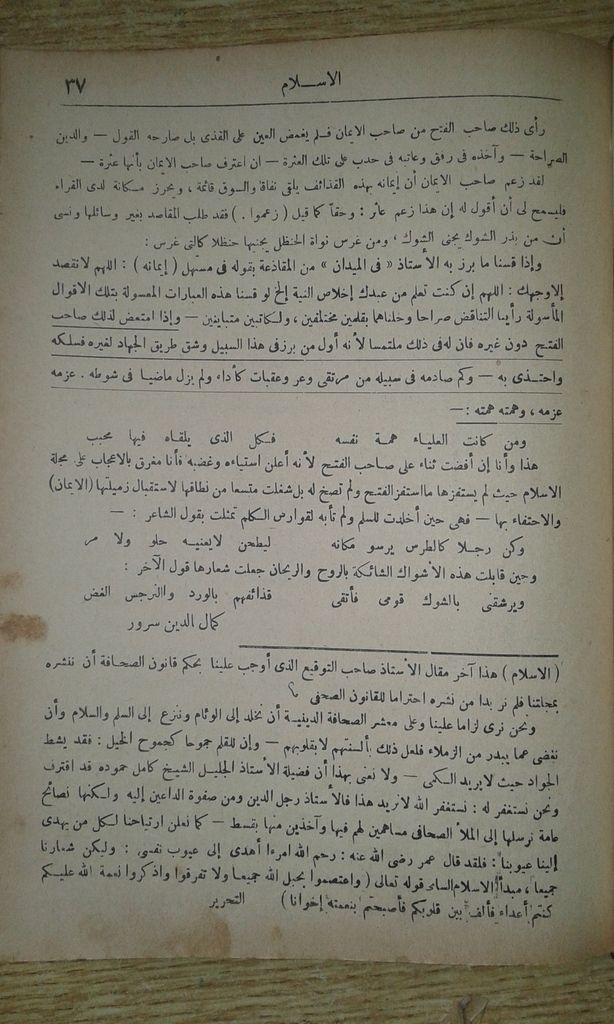 الاسلام
٣٧
رأى ذلك صاحب الفتح من صاحب الايمان فلم يغمض العين على القذى بل صارحه القول — والدين
الصراحة — وآخذه فى رفق وعاتبه فى حدب على تلك العثرة — ان اعترف صاحب الايمان بأنها عثرة —
لقد زعم صاحب الايمان أن إيمانه بهذه القذائف يلقى نفاقا والسوق قائمة ، ويحرز مكانة لدى القراء
فليسمح لى أن أقول له إن هذا زعم عاثر : وحقا كما قيل ( زعموا . ) فقد طلب المقاصد بغير وسائلها ونسى
أن من بذر الشوك يجنى الشوك ، ومن غرس نواة الحنظل يجنيها حنظلا كالتى غرس :
وإذا قسنا ما برز به الأستاذ « فى الميدان » من المقاذعة بقوله فى مستهل ( إيمانه ) : اللهم لانقصد
إلاوجهك : اللهم إن كنت تعلم من عبدك إخلاص النية إلخ لو قسنا هذه العبارات المعسولة بتلك الاقوال
المأسولة رأينا التناقض صراحا وخلناهما بقلمين مختلفين ، ولكاتبين متباينين — وإذا امتعض لذلك صاحب
الفتح دون غيره فان له فى ذلك ملتمسا لأنه أول من برز فى هذا السبيل وشق طريق الجهاد لغيره فسلكه
واحتذى به — وكم صادمه فى سبيله من مرتقى وعر وعقبات كأداء ولم يزل ماضيا فى شوطه . عزمه
عزمه ، وهمته همته : —
ومن كانت العلياء همة نفسه فكل الذى يلقاه فيها محبب
هذا وأنا إن أفضت ثناء على صاحب الفتح لأنه أعلن استياءه وغضبه فأنا مغرق بالاعجاب على مجلة
الاسلام حيث لم يستفزها مااستفزالفتح ولم تصخ له بل شغلت متسعا من نطاقها لاستقبال زميلتها (الايمان)
والاحتفاء بها — فهى حين أخلدت للسلم ولم تأبه لقوارص الكلم تمثلت بقول الشاعر : —
وكن رجلا كالطرس يرسو مكانه ليطحن لايعنيه حلو ولا مر
وحين قابلت هذه الأشواك الشائكة بالروح والريحان جعلت شعارها قول الآخر :
ويرشقنى بالشوك قومى فأتقى قذائفهم بالورد والنرجس الغض
كمال الدين سرور
( الاسلام ) هذا آخر مقال الأستاذ صاحب التوقيع الذى أوجب علينا بحكم قانون الصحافة أن ننشره
بمجلتنا فلم نر بدا من نشره احتراما للقانون الصحفى
ونحن نرى لزاما علينا وعلى معشر الصحافة الدينية أن نخلد إلى الوئام وننزع إلى السلم والسلام وأن
نغضى عما يبدر من الزملاء فلعل ذلك بألسنتهم لابقلوبهم — وإن للقلم جموحا كجموح الخيل : فقد يشط
الجواد حيث لا يريد الكمى — ولا نعنى بهذا أن فضيلة الأستاذ الجليل الشيخ كامل حموده قد اقترف
ونحن نستغفر له : نستغفر الله لانريد هذا فالأستاذ رجل الدين ومن صفوة الداعين إليه ولكنها نصائح
عامة نرسلها إلى الملأ الصحافى مساهمين لهم فيها وآخذين منها بقسط — كما نعلن ارتياحنا لكل من يهدى
إلينا عيوبنا : فلقد قال عمر رضى الله عنه : رحم الله امرءا أهدى إلى عيوب نفسى : وليكن شعارنا
جميعا ، مبدأ الاسلام السامى قوله تعالى ( واعتصموا بحبل الله جميعا ولا تفرقوا واذكروا نعمة الله عليكم إذ
كنتم أعداء فألف بين قلوبكم فأصبحتم بنعمته إخوانا ) التحرير